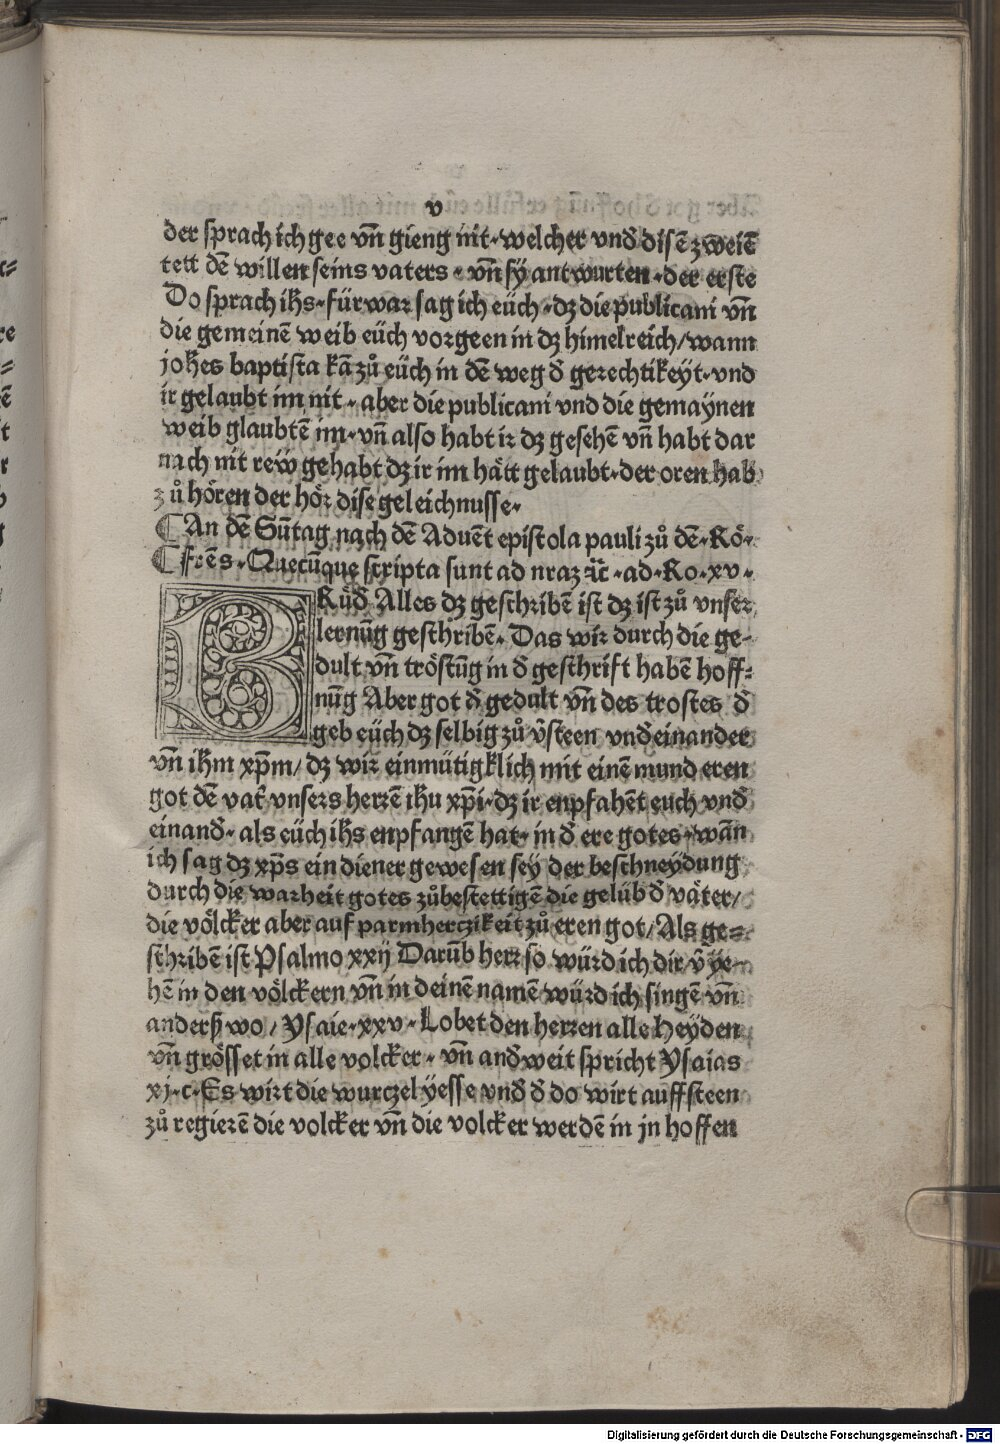 v
der sprach ich gee vn̄ gieng nit · welcher vnd̄ disē zweiē
tett dē willen seins vaters · vn̄ sÿ antwurten · der erste
Do sprach ih̄s · fürwar sag ich eüch · dz die publicani vn̄
die gemeinē weib eüch vorgeen in dz himelreich / wann
joh̄es baptista kā zů eüch in dē weg d̄ gerechtikeÿt · vnd
ir gelaubt im nit · aber die publicani vnd die gemaÿnen
weib glaubtē im · vn̄ also habt ir dz gesehē vn̄ habt dar
nach nit rew gehabt dz ir im hått gelaubt · der oren hab
zů hören der hör dise geleichnusse ·
¶ An dē Sūtag nach dē Aduēt epistola pauli zů dē · Rö ·
¶ frēs · Quecūque scripta sunt ad nraz ꝛc̄ · ad · Ro · xv ·
BRůd̄ Alles dz geschribē ist dz ist zů vnser
lernūg geschribē · Das wir durch die ge-
dult vn̄ tröstūg in d̄ geschrift habē hoff=
nūg Aber got d̄ gedult vn̄ des trostes d̄
geb eüch dz selbig zů v̄steen vnd̄einander
vn̄ ih̄m xp̄m / dz wir einmütigklich mit einē mund eren
got dē vat̄ vnsers herrē ih̄u xp̄i · dz ir enpfahēt euch vnd̄
einand̄ · als eüch ih̄s enpfangē hat · in d̄ ere gotes · wān
ich sag dz xp̄s ein diener gewesen seÿ der beschneÿdung
durch die warheit gotes zůbestettigē die gelüb d̄ våter /
die völcker aber auf parmherczikeit zů eren got / Als ge=
schribē ist Psalmo xxij Darūb herr so würd ich dir v̄ÿe-
hē in den völckern vn̄ in deinē namē würd ich singē vn̄
anderß wo / Ysaie · xxv · Lobet den herren alle Heÿden
vn̄ grösset in alle volcker · vn̄ and̄weit spricht Ysaias
xj · c · Es wirt die wurczel ÿesse vnd̄ d̄ do wirt auffsteen
zů regierē die volcker vn̄ die volcker werdē in jn hoffen
Digitalisierung gefördert durch die Deutsche Forschungsgemeinschaft - DFG